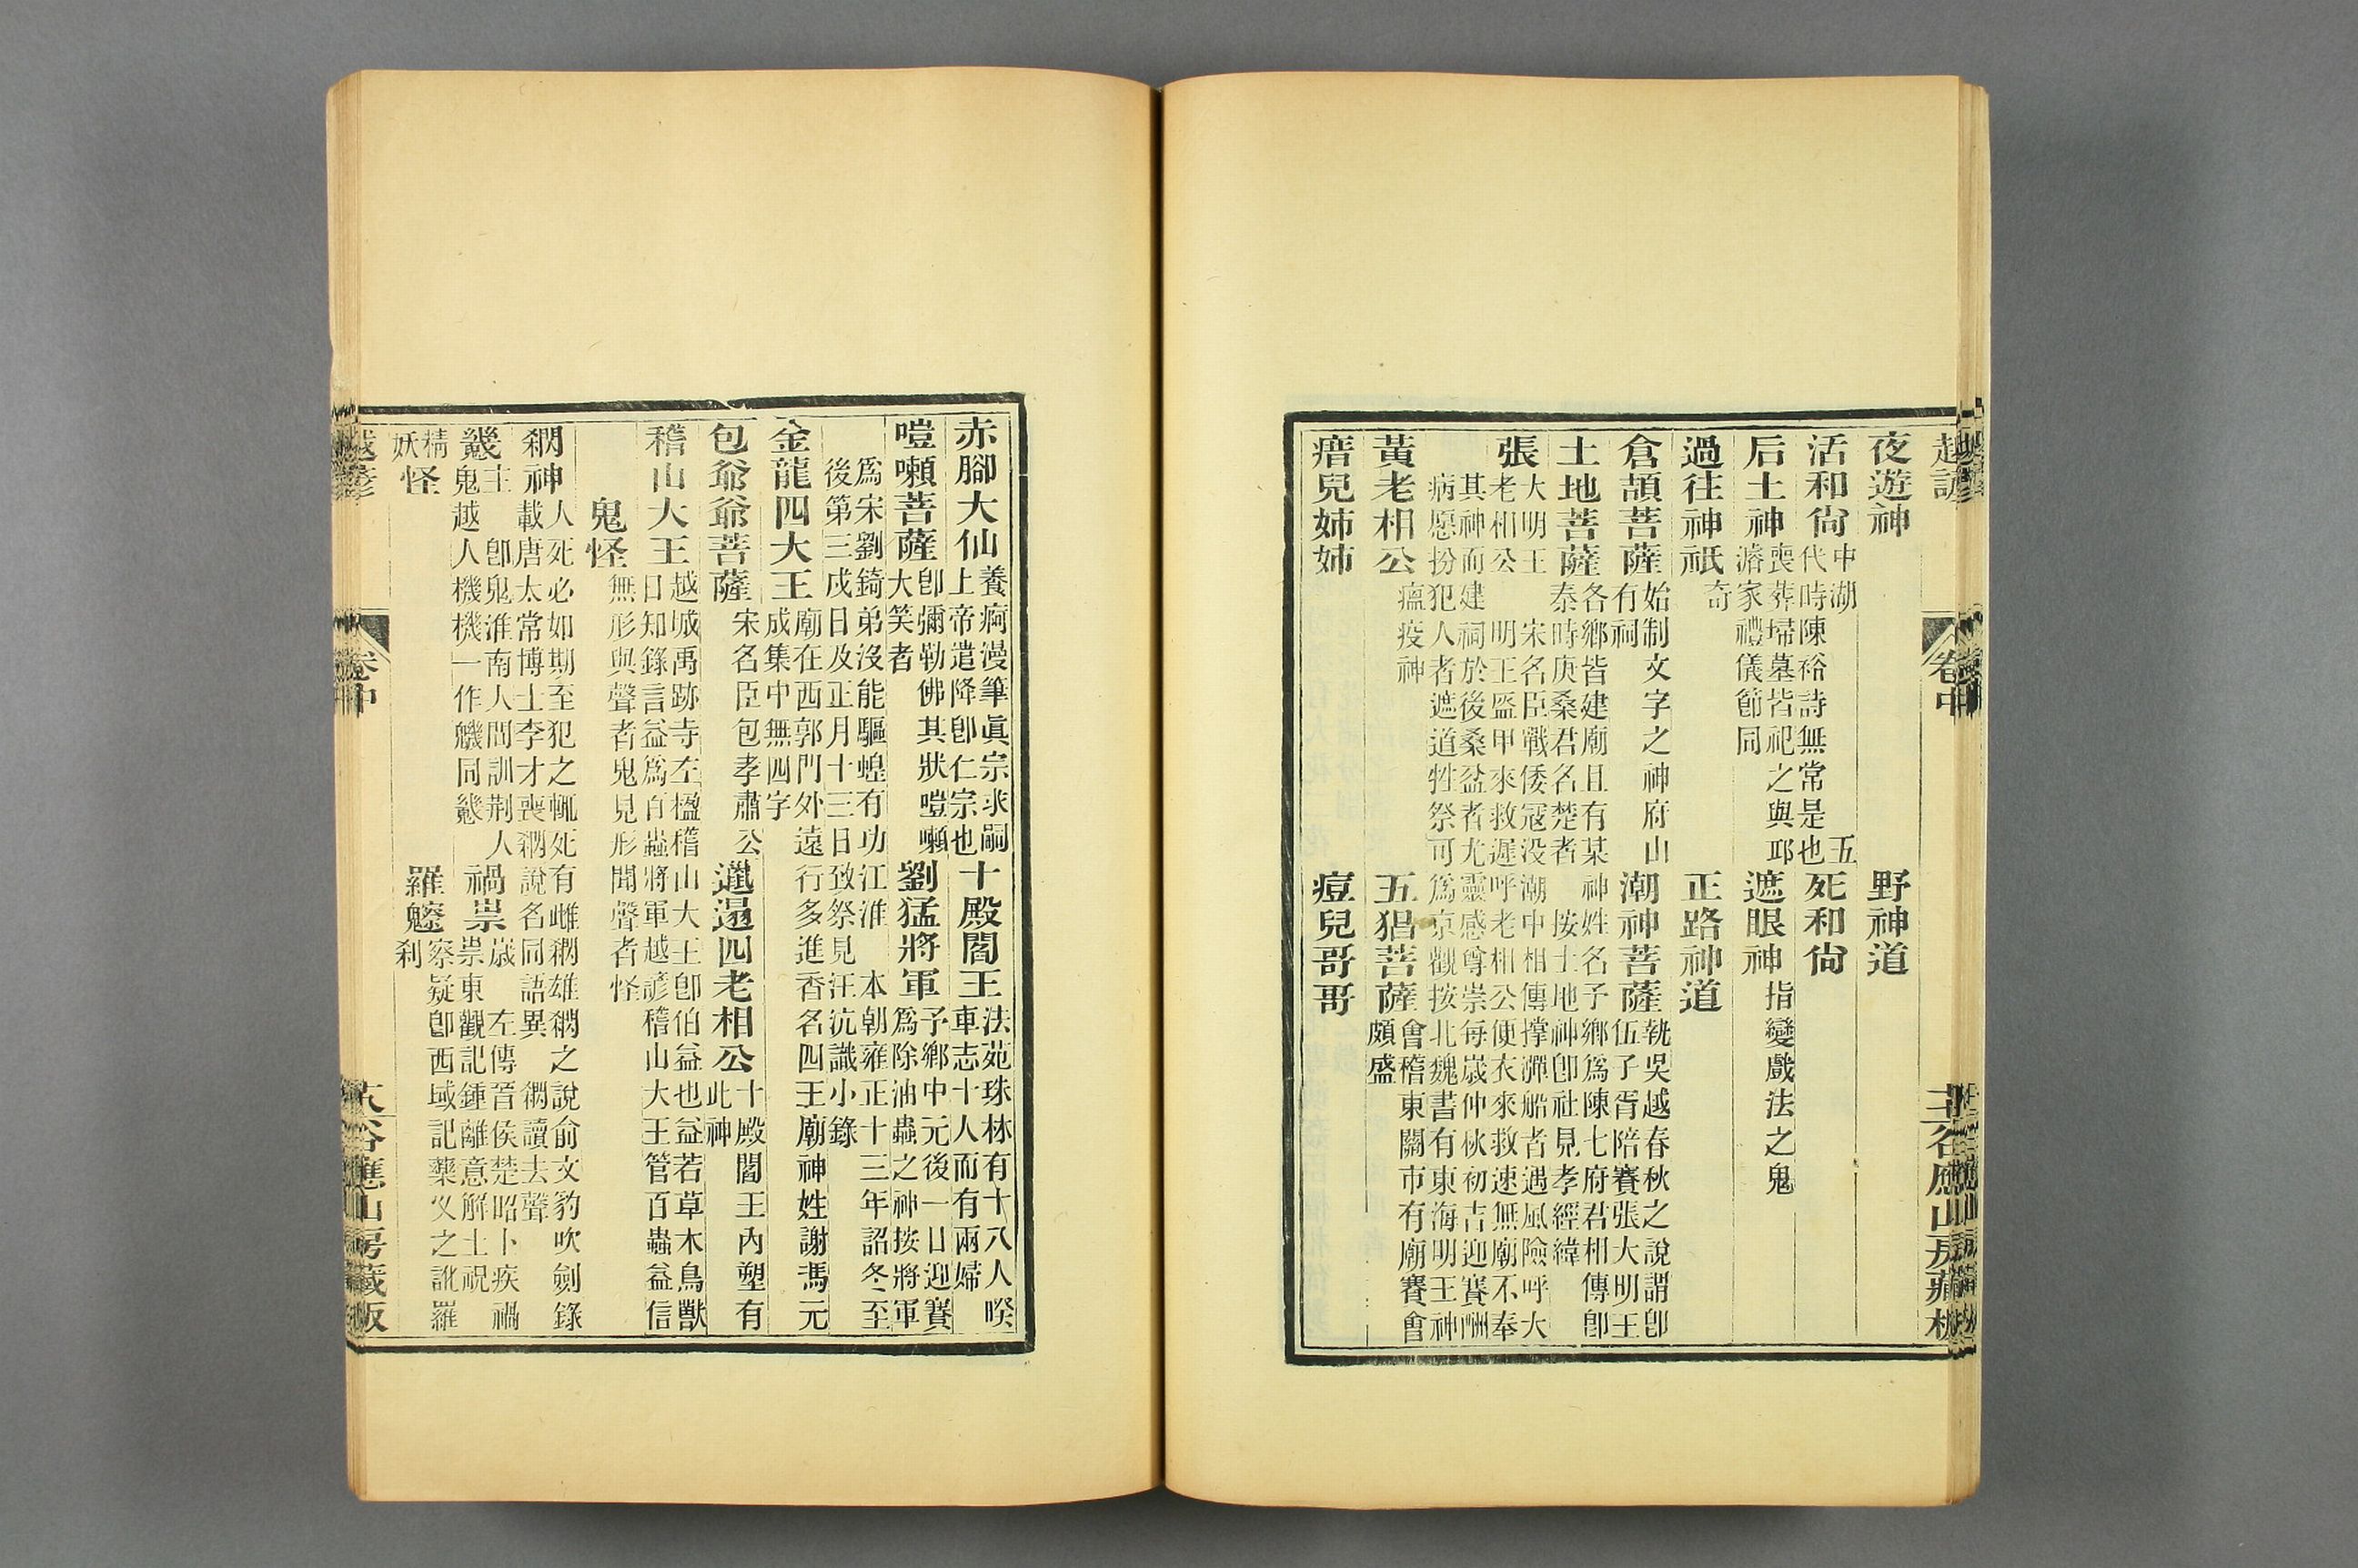 越諺 卷中 谷應山房藏板
夜遊神 野神道
活和尙 中湖 五代時陳裕詩無常是也 死和尙
后土神 喪葬埽墓皆祀之與邱濬家禮儀節同 遮眼神 指變戲法之鬼
過往神祇 奇 正路神道
倉頡菩薩 始制文字之神府山有祠 潮神菩薩 執吳越春秋之說謂卽伍子胥陪賽張大明王
土地菩薩 各鄉皆建廟且有某神姓名予鄉爲陳七府君相傳卽泰時庚桑君名楚者 按土地神卽社見孝經緯
張大明王老相公 宋名臣戰倭寇没潮中相傳撑澥船者遇風險呼大明王盔甲來救遲呼老相公便衣來救速無廟不奉
其神而建祠於後桑盆者尤靈感尊崇每歲仲秋初吉迎賽酬病愿扮犯人者遮道牲祭可爲京觀按北魏書有東海明王神
黃老相公 瘟疫神 五猖菩薩 會稽東關市有廟賽會頗盛
瘄兒姉姉 痘兒哥哥
赤腳大仙 養疴漫筆眞宗求嗣上帝遣降卽仁宗也 十殿閻王 法苑珠林有十八人暌車志十人而有兩婦
菩薩 卽彌勒佛其狀大笑者 劉猛將軍 予鄉中元後一日迎賽爲除油蟲之神按將軍
爲宋劉錡弟沒能驅蝗有功江淮 本朝雍正十三年詔冬至後第三戌日及正月十三日致祭見汪沆識小錄
金龍四大王 廟在西郭門外遠行多進香名四王廟神姓謝馮元成集中無四字
包爺爺菩薩 宋名臣包孝肅公 邋遢四老相公 十殿閻王內塑有此神
稽山大王 越城禹跡寺左楹稽山大王卽伯益也益若草木鳥獸日知錄言益爲百蟲將軍越諺稽山大王管百蟲益信
鬼怪 無形與聲者鬼見形聞聲者怪
神 人死必如期至犯之輒死有雌雄之說俞文豹吹劍錄載唐太常博士李才喪說名同語異 讀去聲
主鬼 卽鬼淮南人閒訓荆人鬼越人機機一作同 禍祟 歲 左傳晉侯楚昭卜疾禍祟東觀記鍾離意解土祝
精妖怪 羅 察疑卽西域記藥叉之訛羅刹
越諺 卷中 谷應山房藏板